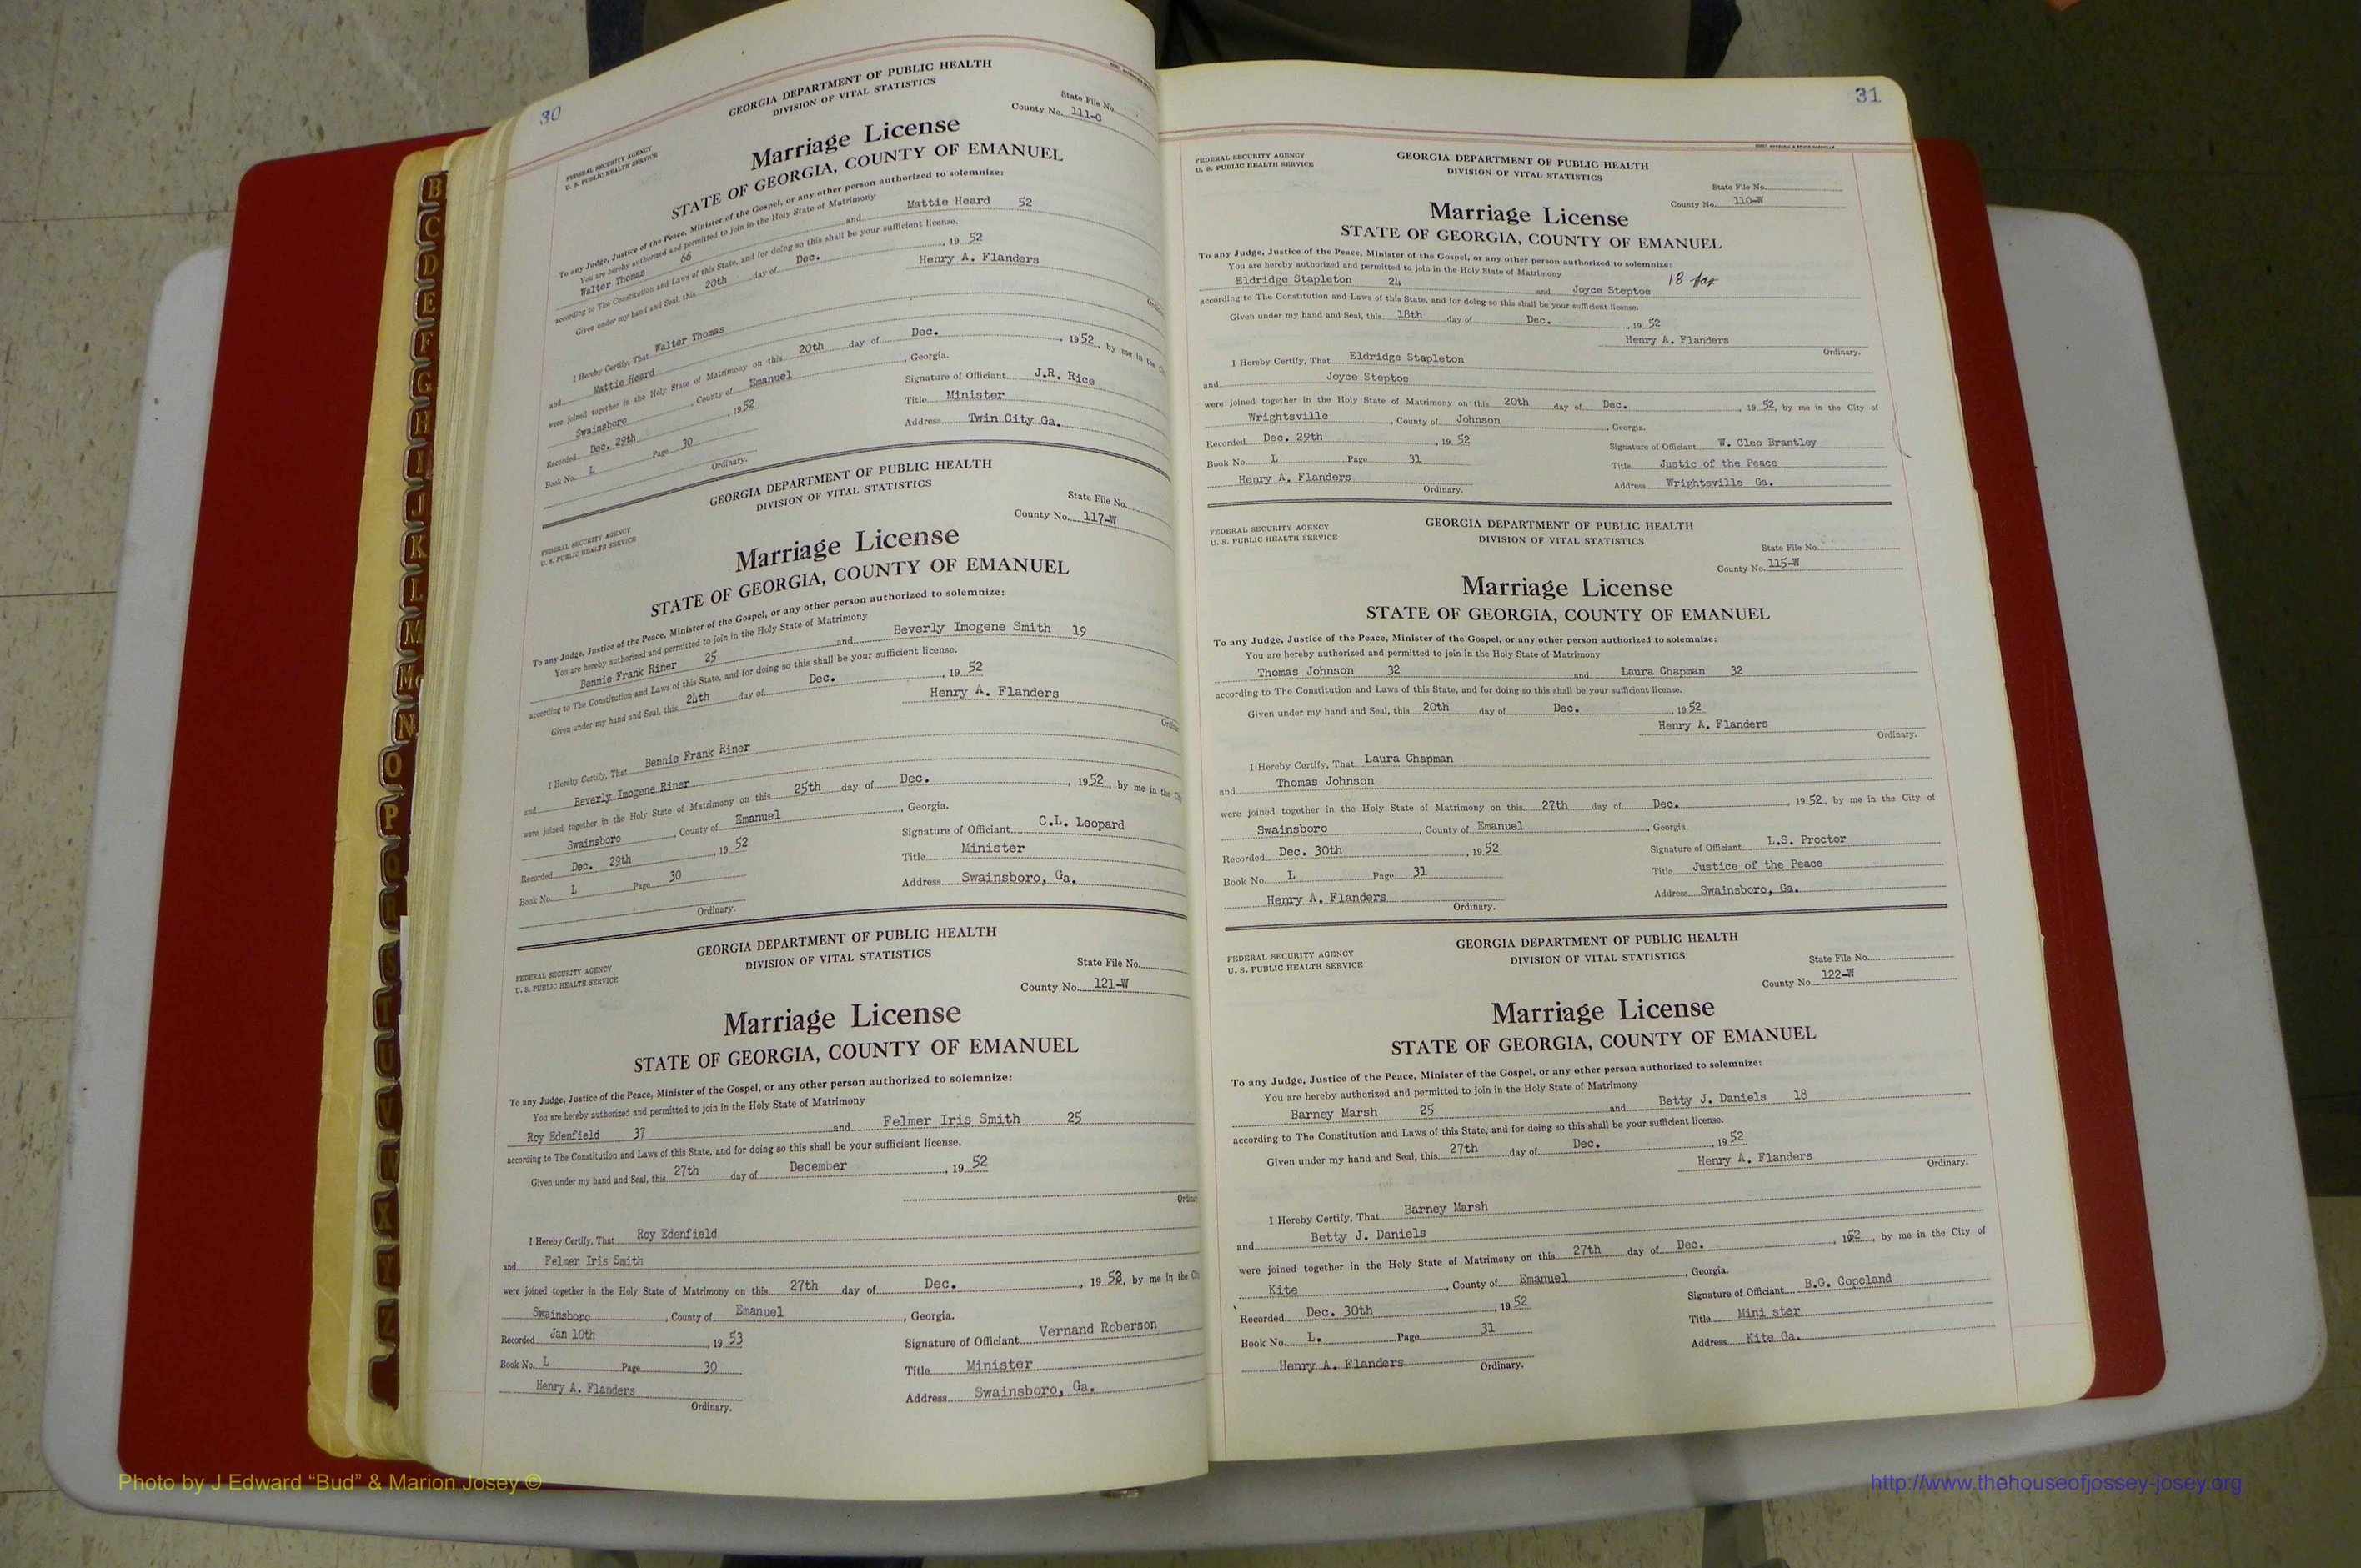 30
GEORGIA DEPARTMENT OF PUBLIC HEALTH
DIVISION OF VITAL STATISTICS
FEDERAL SECURITY AGENCY
U. S. PUBLIC HEALTH SERVICE
State File No.
County No. 111-C
Marriage License
STATE OF GEORGIA, COUNTY OF EMANUEL
To any Judge, Justice of the Peace, Minister of the Gospel, or any other person authorized to solemnize:
You are hereby authorized and permitted to join in the Holy State of Matrimony
Walter Thomas 66 and Mattie Heard 52
according to The Constitution and Laws of this State, and for doing so this shall be your sufficient license.
Given under my hand and Seal, this 20th day of Dec. , 19 52
Henry A. Flanders
I Hereby Certify, That Walter Thomas
and Mattie Heard
were joined together in the Holy State of Matrimony on this 20th day of Dec. , 19 52, by me in the
Swainsboro , County of Emanuel , Georgia.
Recorded Dec. 29th , 19 52
Signature of Officiant J.R. Rice
Book No. L Page 30
Title Minister
Ordinary.
Address Twin City Ga.
GEORGIA DEPARTMENT OF PUBLIC HEALTH
DIVISION OF VITAL STATISTICS
FEDERAL SECURITY AGENCY
U. S. PUBLIC HEALTH SERVICE
State File No.
County No. 117-W
Marriage License
STATE OF GEORGIA, COUNTY OF EMANUEL
To any Judge, Justice of the Peace, Minister of the Gospel, or any other person authorized to solemnize:
You are hereby authorized and permitted to join in the Holy State of Matrimony
Bennie Frank Riner 25 and Beverly Imogene Smith 19
according to The Constitution and Laws of this State, and for doing so this shall be your sufficient license.
Given under my hand and Seal, this 24th day of Dec. , 19 52
Henry A. Flanders
I Hereby Certify, That Bennie Frank Riner
and Beverly Imogene Riner
were joined together in the Holy State of Matrimony on this 25th day of Dec. , 19 52, by me in the
Swainsboro , County of Emanuel , Georgia.
Recorded Dec. 29th , 19 52
Signature of Officiant C.L. Leopard
Book No. L Page 30
Title Minister
Ordinary.
Address Swainsboro, Ga.
GEORGIA DEPARTMENT OF PUBLIC HEALTH
DIVISION OF VITAL STATISTICS
FEDERAL SECURITY AGENCY
U. S. PUBLIC HEALTH SERVICE
State File No.
County No. 121-W
Marriage License
STATE OF GEORGIA, COUNTY OF EMANUEL
To any Judge, Justice of the Peace, Minister of the Gospel, or any other person authorized to solemnize:
You are hereby authorized and permitted to join in the Holy State of Matrimony
Roy Edenfield 37 and Felmer Iris Smith 25
according to The Constitution and Laws of this State, and for doing so this shall be your sufficient license.
Given under my hand and Seal, this 27th day of December , 19 52
I Hereby Certify, That Roy Edenfield
and Felmer Iris Smith
were joined together in the Holy State of Matrimony on this 27th day of Dec. , 19 52, by me in the
Swainsboro , County of Emanuel , Georgia.
Recorded Jan 10th , 19 53
Signature of Officiant Vernand Roberson
Book No. L Page 30
Title Minister
Henry A. Flanders
Ordinary.
Address Swainsboro, Ga.
31
FEDERAL SECURITY AGENCY
U. S. PUBLIC HEALTH SERVICE
GEORGIA DEPARTMENT OF PUBLIC HEALTH
DIVISION OF VITAL STATISTICS
State File No.
County No. 110-W
Marriage License
STATE OF GEORGIA, COUNTY OF EMANUEL
To any Judge, Justice of the Peace, Minister of the Gospel, or any other person authorized to solemnize:
You are hereby authorized and permitted to join in the Holy State of Matrimony
Eldridge Stapleton 24 and Joyce Steptoe 18
according to The Constitution and Laws of this State, and for doing so this shall be your sufficient license.
Given under my hand and Seal, this 18th day of Dec. , 19 52
Henry A. Flanders
Ordinary.
I Hereby Certify, That Eldridge Stapleton
and Joyce Steptoe
were joined together in the Holy State of Matrimony on this 20th day of Dec. , 19 52, by me in the City of
Wrightsville , County of Johnson , Georgia.
Recorded Dec. 29th , 19 52
Signature of Officiant W. Cleo Brantley
Book No. L Page 31
Title Justic of the Peace
Henry A. Flanders
Ordinary.
Address Wrightsville Ga.
FEDERAL SECURITY AGENCY
U. S. PUBLIC HEALTH SERVICE
GEORGIA DEPARTMENT OF PUBLIC HEALTH
DIVISION OF VITAL STATISTICS
State File No.
County No. 115-W
Marriage License
STATE OF GEORGIA, COUNTY OF EMANUEL
To any Judge, Justice of the Peace, Minister of the Gospel, or any other person authorized to solemnize:
You are hereby authorized and permitted to join in the Holy State of Matrimony
Thomas Johnson 32 and Laura Chapman 32
according to The Constitution and Laws of this State, and for doing so this shall be your sufficient license.
Given under my hand and Seal, this 20th day of Dec. , 19 52
Henry A. Flanders
Ordinary.
I Hereby Certify, That Laura Chapman
and Thomas Johnson
were joined together in the Holy State of Matrimony on this 27th day of Dec. , 19 52, by me in the City of
Swainsboro , County of Emanuel , Georgia.
Recorded Dec. 30th , 19 52
Signature of Officiant L.S. Proctor
Book No. L Page 31
Title Justice of the Peace
Henry A. Flanders
Ordinary.
Address Swainsboro, Ga.
FEDERAL SECURITY AGENCY
U. S. PUBLIC HEALTH SERVICE
GEORGIA DEPARTMENT OF PUBLIC HEALTH
DIVISION OF VITAL STATISTICS
State File No.
County No. 122-W
Marriage License
STATE OF GEORGIA, COUNTY OF EMANUEL
To any Judge, Justice of the Peace, Minister of the Gospel, or any other person authorized to solemnize:
You are hereby authorized and permitted to join in the Holy State of Matrimony
Barney Marsh 25 and Betty J. Daniels 18
according to The Constitution and Laws of this State, and for doing so this shall be your sufficient license.
Given under my hand and Seal, this 27th day of Dec. , 19 52
Henry A. Flanders
Ordinary.
I Hereby Certify, That Barney Marsh
and Betty J. Daniels
were joined together in the Holy State of Matrimony on this 27th day of Dec. , 1952, by me in the City of
Kite , County of Emanuel , Georgia.
Recorded Dec. 30th , 19 52
Signature of Officiant B.G. Copeland
Book No. L. Page 31
Title Mini ster
Henry A. Flanders
Ordinary.
Address Kite Ga.
B
C
D
E
F
G
H
I
J
K
L
M
Mc
N
O
P
Q
T
U
V
X
Y
Z
Photo by J Edward “Bud” & Marion Josey ©
http://www.thehouseofjossey-josey.org